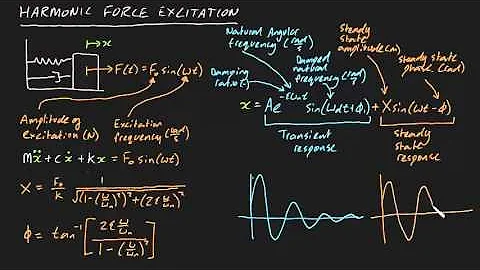 HARMONIC FORCE EXCITATION
x
F(t) = F₀ sin(ωt)
Amplitude of
Excitation (N)
Excitation
frequency (rad/s)
mẍ + cẋ + kx = F₀ sin(ωt)
X = F₀/k 1/√((1-(ω/ωn)²)² + (2ξ ω/ωn)²)
ϕ = tan⁻¹[2ξ ω/ωn / 1-(ω/ωn)²]
Natural Angular
frequency (rad/s)
Damping
ratio (-)
Damped
natural
frequency (rad/s)
Steady
State
amplitude (m)
steady state
phase (rad)
x = Ae^-ξωnt sin(ωdt+ϕ₁) + X sin(ωt-ϕ)
Transient
response
steady
state
response